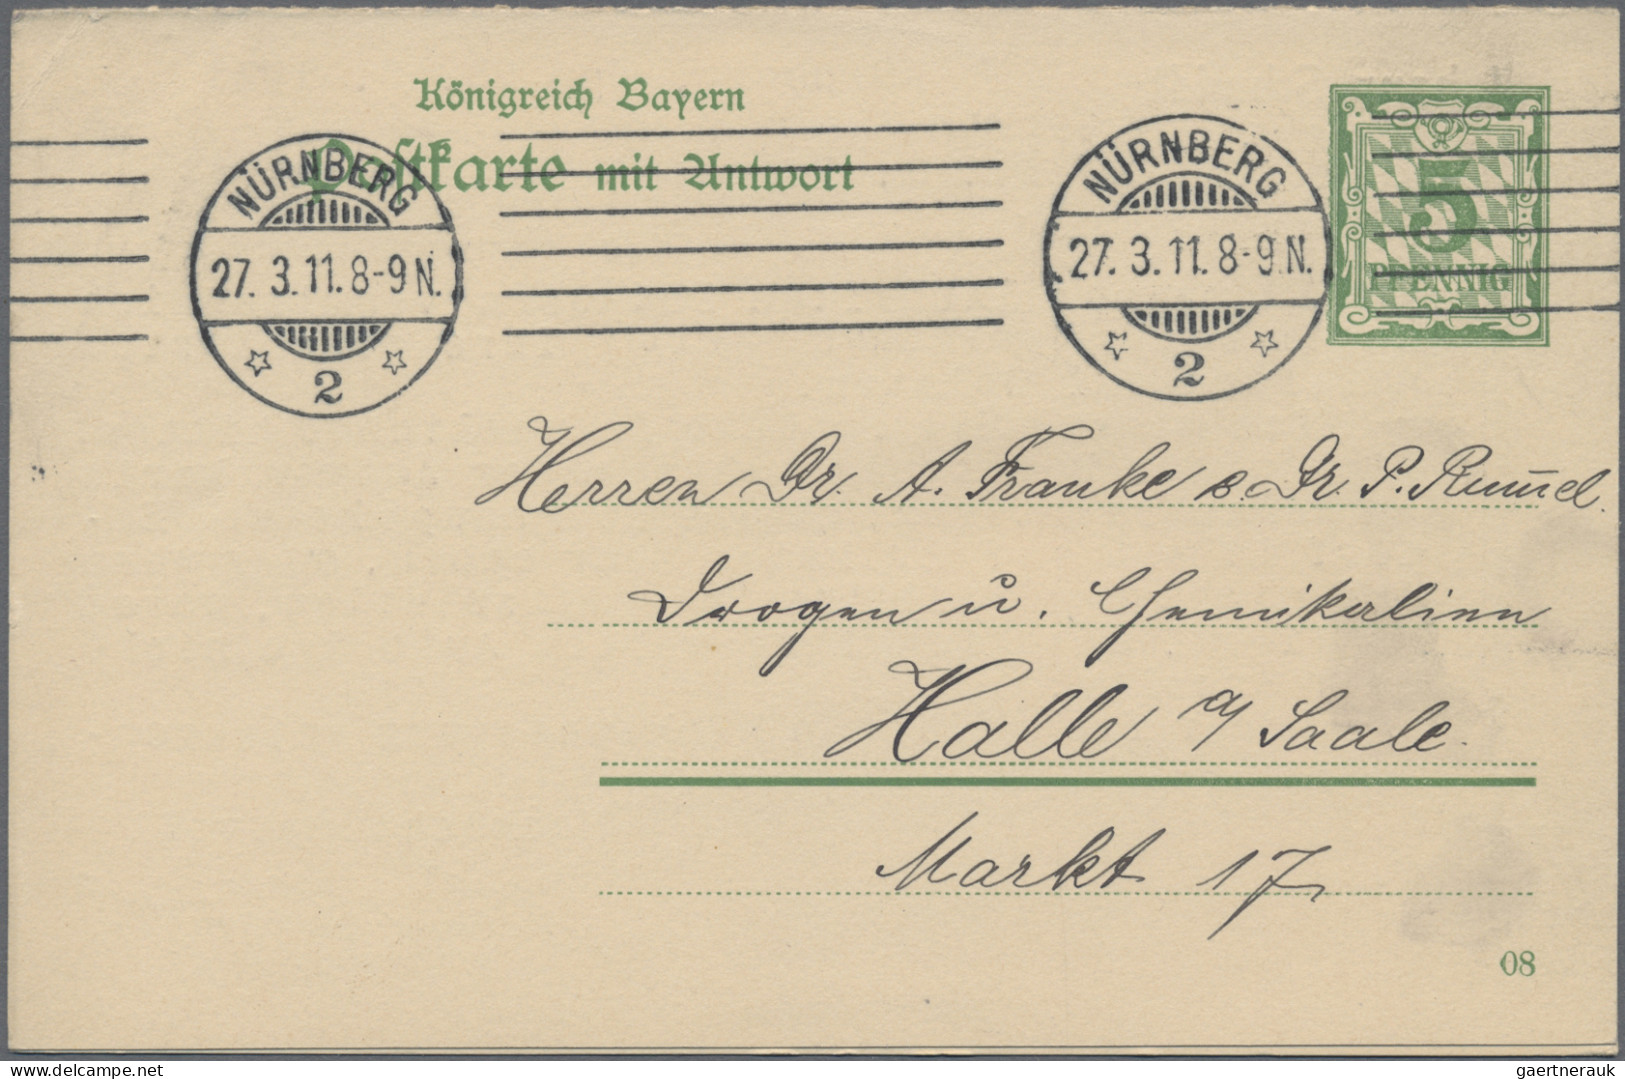 Königreich Bayern
Postkarte mit Antwort
NÜRNBERG
27. 3. 11. 8-9 N.
2
NÜRNBERG
27. 3. 11. 8-9 N.
2
5
PFENNIG
Herren Dr. A. Franke & Dr. P. Rum̄el.
Drogen u. Chemikalien
Halle a/ Saale.
Markt 17
08
delcampe.net
gaertnerauk